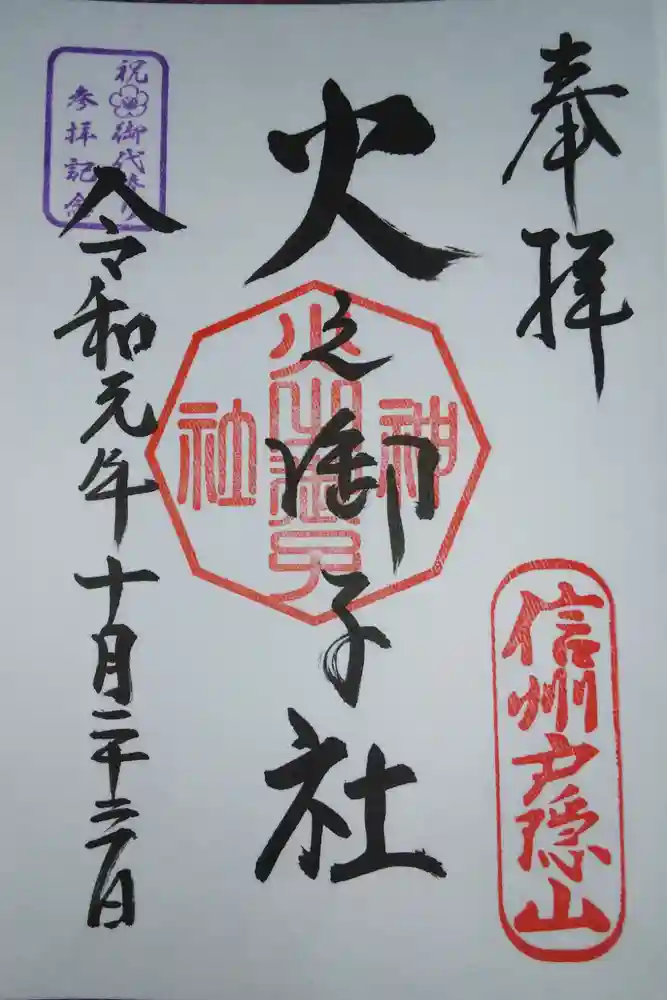 奉拝
信州戸隠山
火之御子社
火之御子
神社
祝御代替り
参拝記念
令和元年十月二十三日